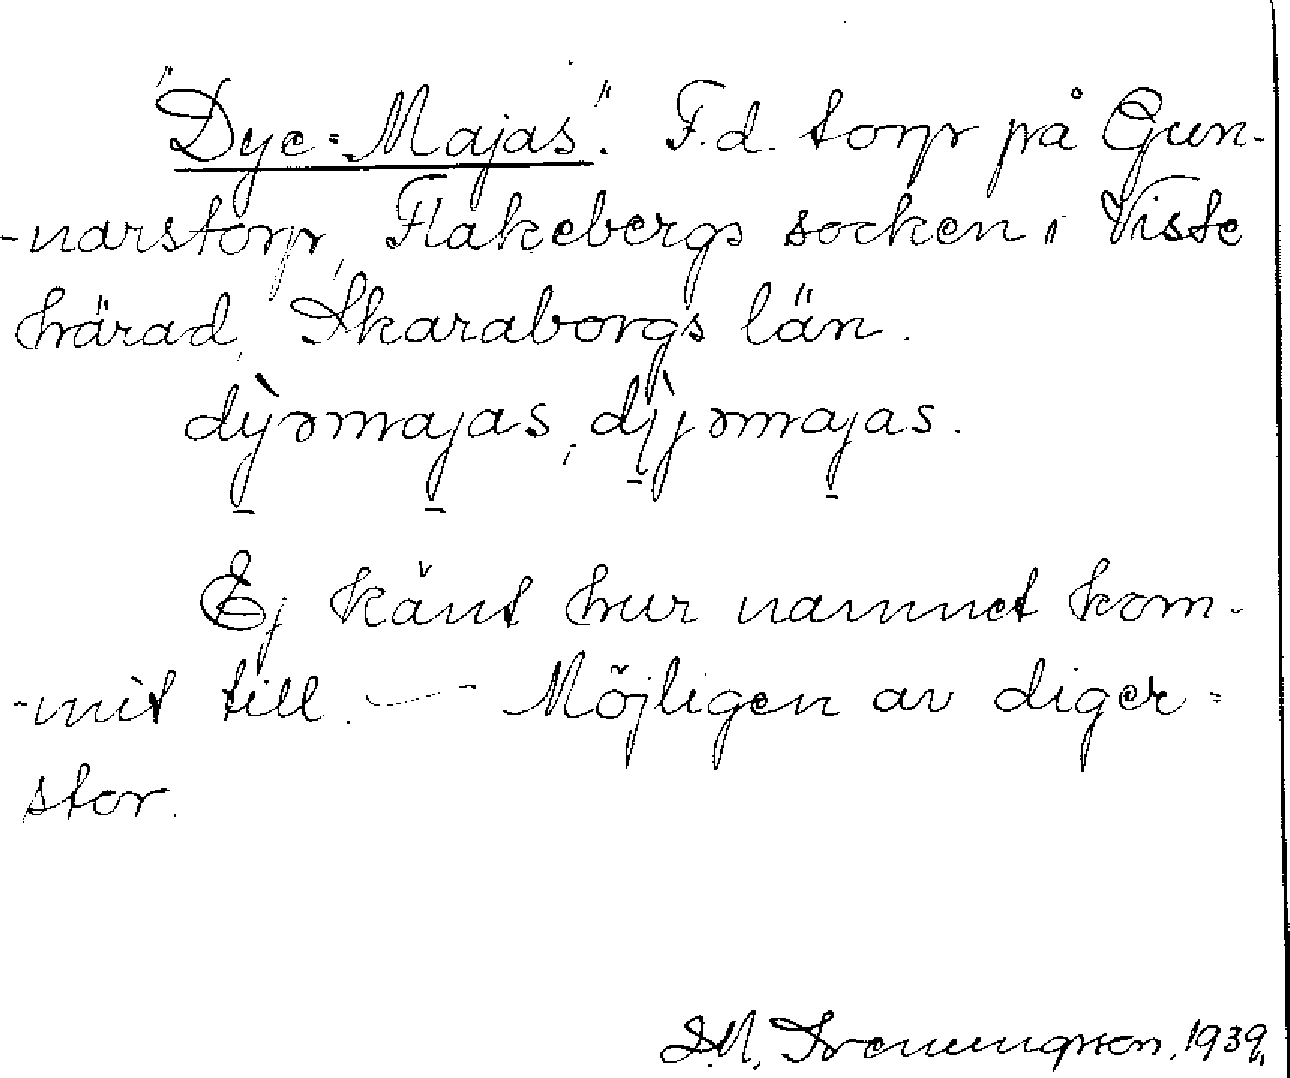 "Dye-Majas". F.d. torp på Gun-
-narstorp, Flakebergs socken i Viste
härad, Skaraborgs län.
dỳəmajas, dỳjəmajas.
Ej känt hur namnet kom-
-mit till. — Möjligen av diger =
stor.
1939.